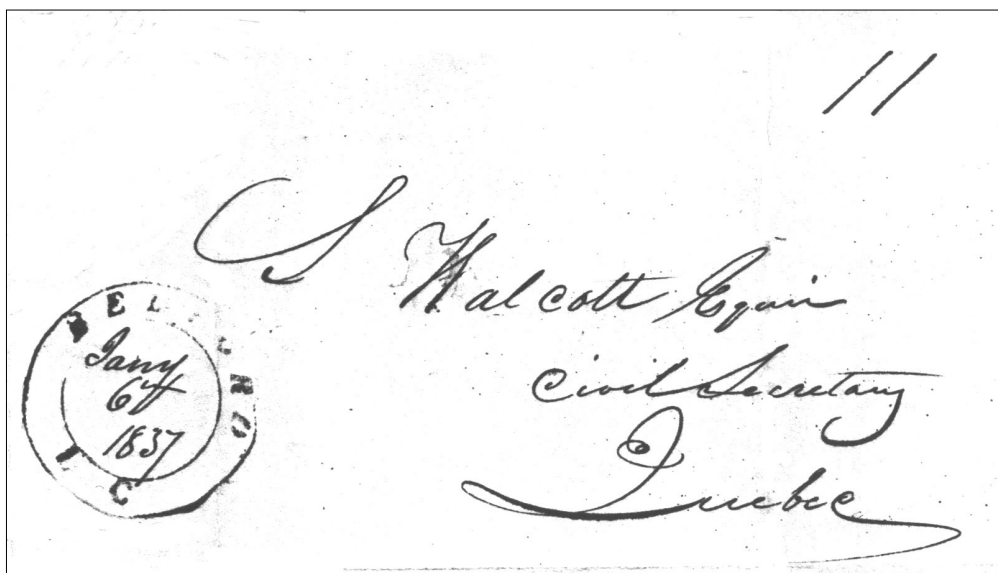 11
S Walcott Esquire
Civil Secretary
Quebec
Jany
6th
1837
L C